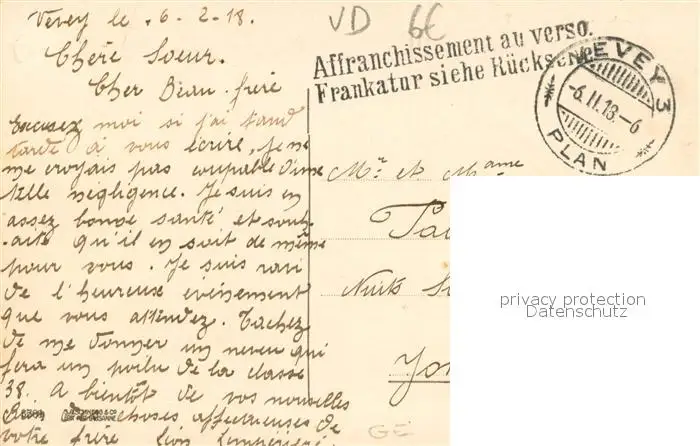 Vevey le . 6 - 2 - 18.
VD 6€
Chère Soeur.
Cher Beau-frère
Affranchissement au verso.
Frankatur siehe Rückseite
VEVEY 3
-6.II.18.-6
PLAN
Excusez moi si j'ai tand
tardé à vous écrire, je ne
me croyais pas coupable d'une
telle negligence. Je suis en
assez bonne santé et souh-
-aite qu'il en soit de même
pour vous. Je suis ravi
de l'heureux évènement
que vous attendez. Tachez
de me donner un neveu qui
fera un poilu de la classe
38. A bientôt de vos nouvelles
choses affectueuses de
votre frère Léon
Mr et Mame
Nuits
Yon
privacy protection
Datenschutz
GE